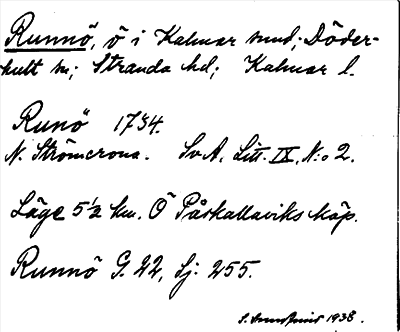 Runnö, ö i Kalmar sund; Döder-
hult sn; Stranda hd; Kalmar l.
Runö 1734.
N. Strömcrona. SvA, Litt. IX, N:o 2.
Läge 5½ km. Ö Påskallaviks köp.
Runnö G. 22, Sj: 255.
1938.